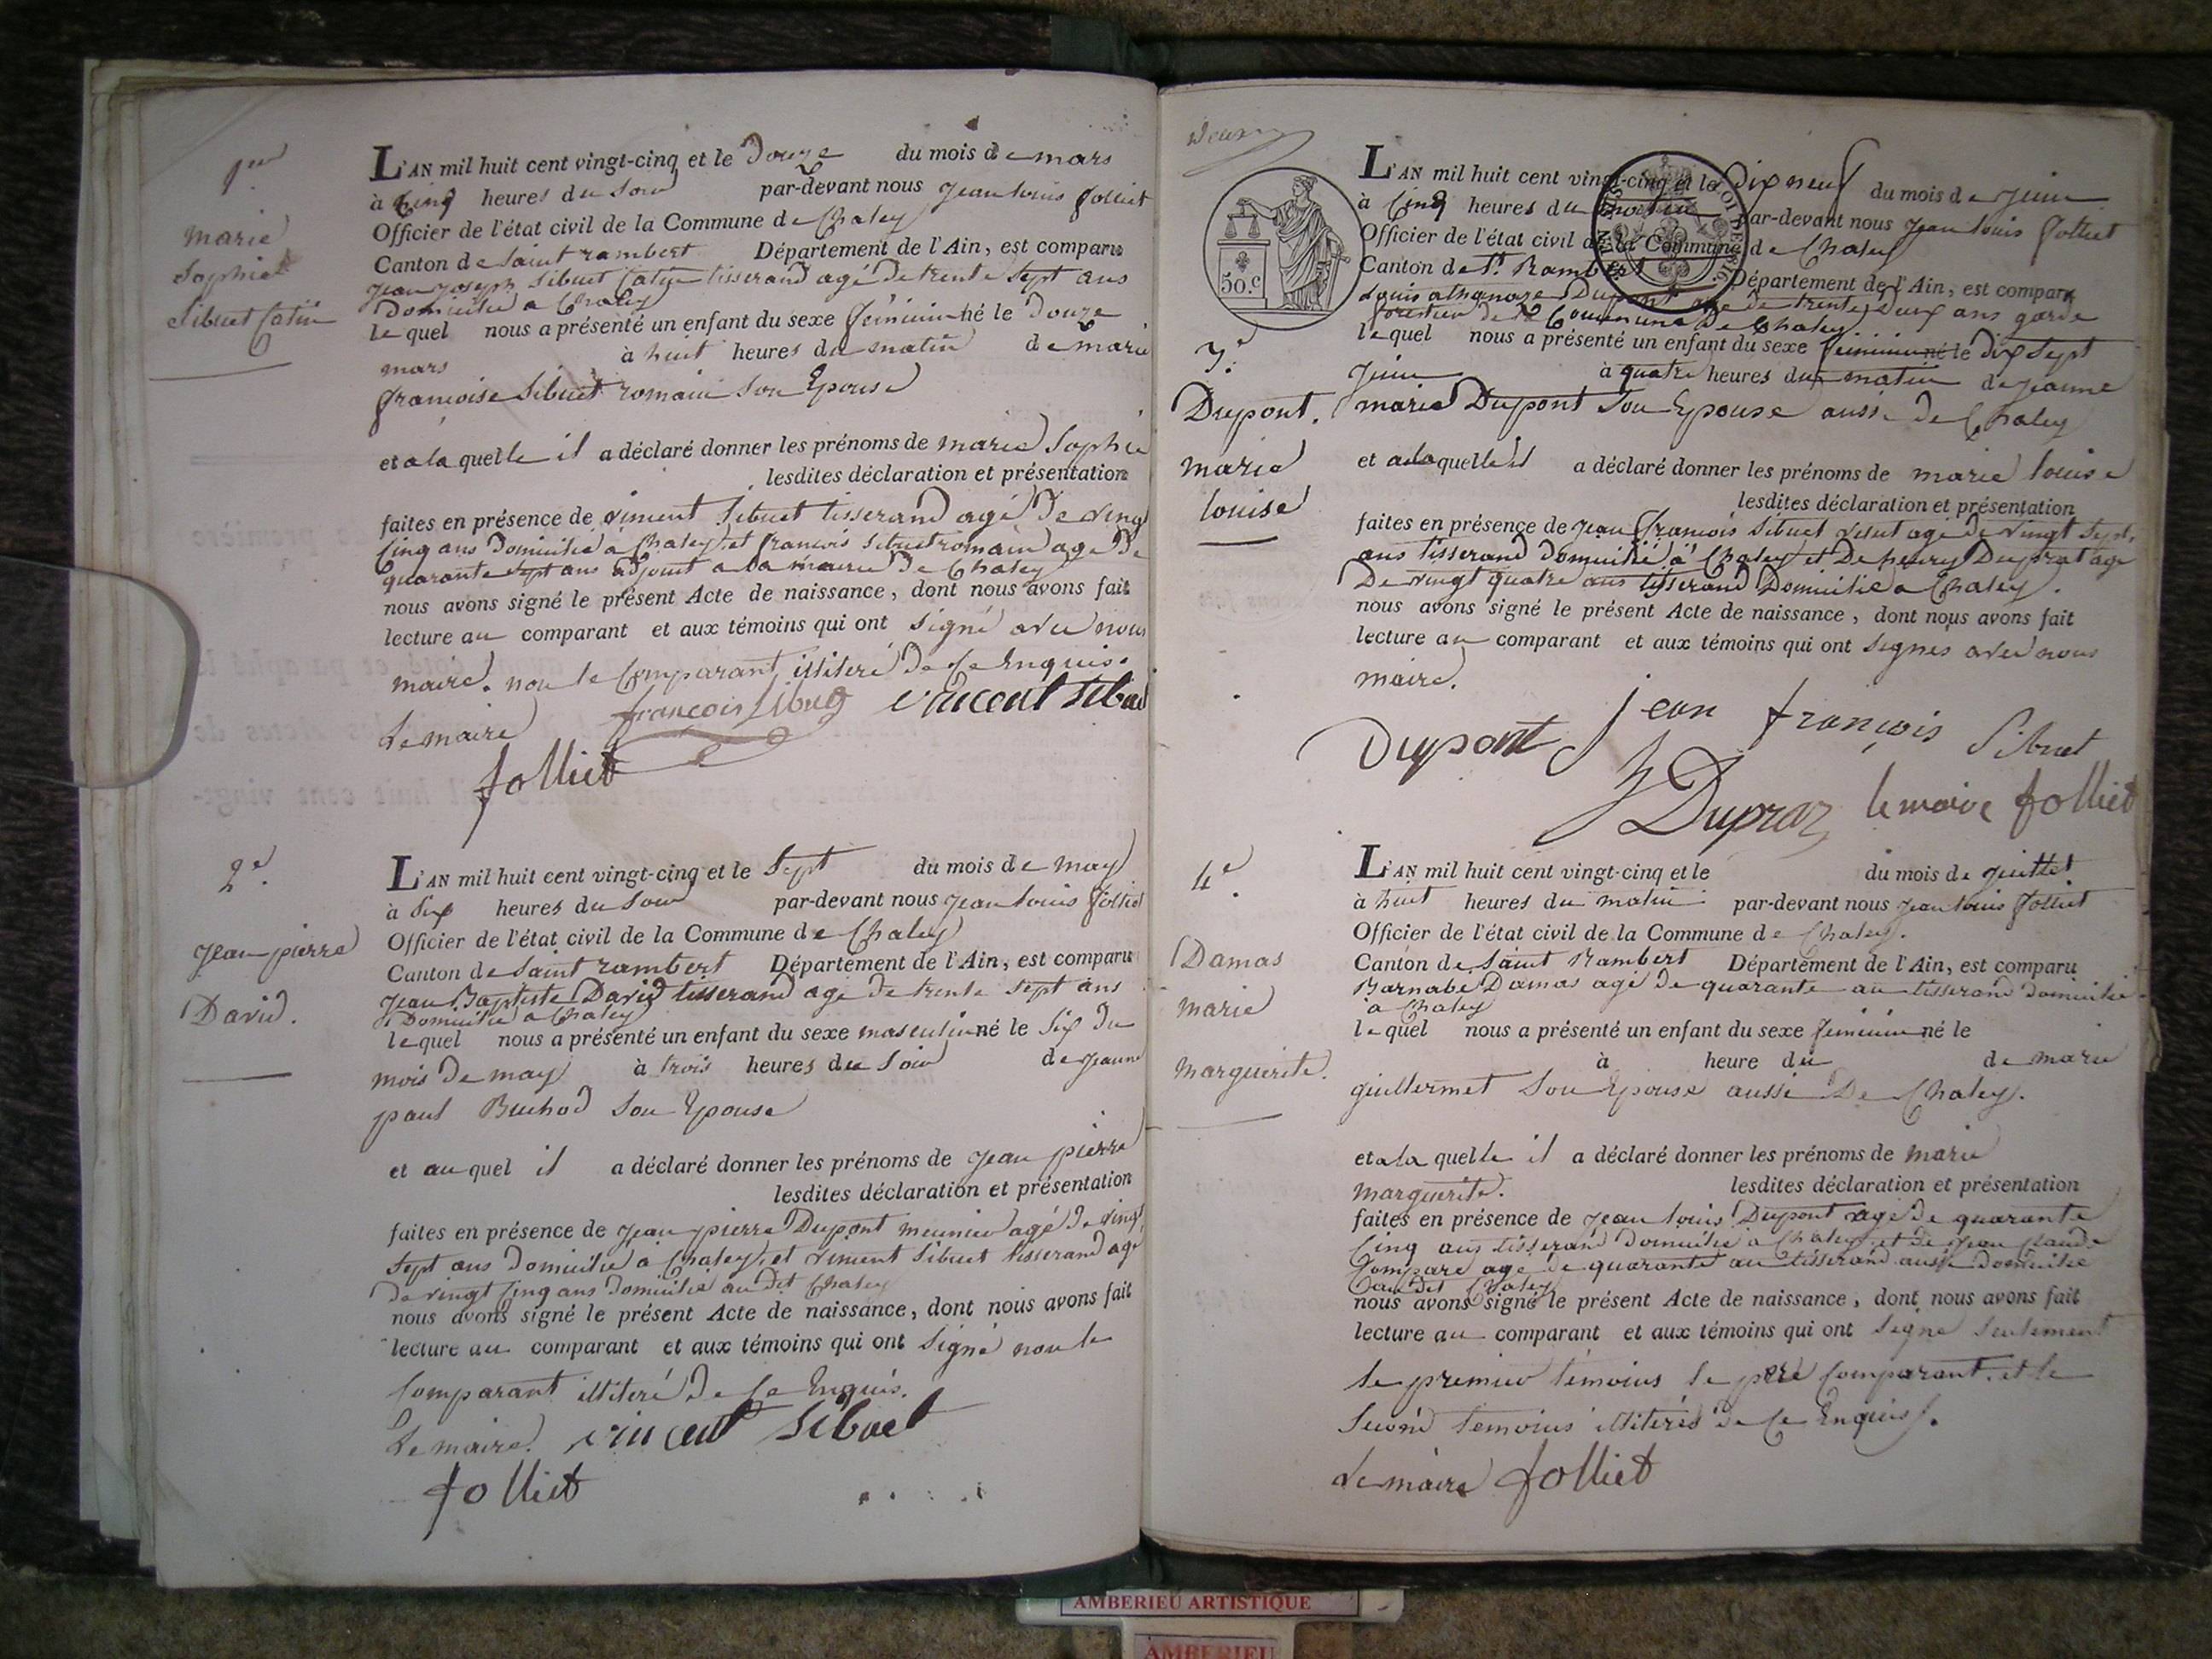 1er
marie
Sophie
Sibuet Catin
L'AN mil huit cent vingt-cinq et le Douze du mois de mars
à Cinq heures du Soir par-devant nous Jean louis folliet
Officier de l'état civil de la Commune de Chaley
Canton de Saint rambert Département de l'Ain, est comparu
Jean Joseph Sibuet Catin tisserand agé de trente Sept ans
Domicilié a Chaley
le quel nous a présenté un enfant du sexe féminin né le Douze
mars à huit heures du matin de marie
francoise Sibuet romain Son Epouse
et a la quelle il a déclaré donner les prénoms de marie Sophie
lesdites déclaration et présentation
faites en présence de vincent Sibuet tisserand agé De vingt
Cinq ans Domicilié a Chaley, et francois Sibuet romain age De
quarante sept ans adjoint a la mairie De Chaley
nous avons signé le présent Acte de naissance, dont nous avons fait
lecture au comparant et aux témoins qui ont Signé avec nous
maire. non le Comparant illiteré De Ce Enquis.
Le maire françois Sibuet vincent Sibuet
folliet
2e.
Jean pierre
David.
L'AN mil huit cent vingt-cinq et le Sept du mois de may
à Six heures du Soir par-devant nous Jean louis folliet
Officier de l'état civil de la Commune de Chaley
Canton de Saint rambert Département de l'Ain, est comparu
Jean Baptiste David tisserand age de trente sept ans
Domicilié a Chaley
le quel nous a présenté un enfant du sexe masculin né le Six Du
mois De may à trois heures du Soir de Jeanne
paul Buchod Son Epouse
et au quel il a déclaré donner les prénoms de Jean pierre
lesdites déclaration et présentation
faites en présence de Jean pierre Dupont meunier agé De vingt
Sept ans Domicilié a Chaley, et vincent Sibuet tisserand age
De vingt Cinq ans Domicilié au Dit Chaley
nous avons signé le présent Acte de naissance, dont nous avons fait
lecture au comparant et aux témoins qui ont Signé non le
Comparant illiteré De Ce Enquis.
Le maire. vincent Sibuet
folliet
50.c
3e.
Dupont.
marie
louise
L'AN mil huit cent vingt-cinq et le Dix neuf du mois de Juin
à Cinq heures du par-devant nous Jean louis folliet
Officier de l'état civil de la Commune de Chaley
Canton de St. Rambert Département de l'Ain, est comparu
Louis athanaze Dupont age De trente Deux ans garde
forestier de la Commune De Chaley
le quel nous a présenté un enfant du sexe feminin né le Dix Sept
Juin à quatre heures du matin de Jeanne
marie Dupont Son Epouse aussi De Chaley
et a la quelle il a déclaré donner les prénoms de marie louise
lesdites déclaration et présentation
faites en présence de Jean francois Sibuet agé De vingt Sept
ans tisserand Domicilié a Chaley et De henry Duprat age
De vingt quatre ans tisserand Domicilié a Chaley.
nous avons signé le présent Acte de naissance, dont nous avons fait
lecture au comparant et aux témoins qui ont Signés avec nous
maire.
Dupont jean françois Sibuet
h Dupraz le maire folliet
4e.
Damas
marie
marguerite.
L'AN mil huit cent vingt-cinq et le du mois de Juillet
à huit heures du matin par-devant nous Jean louis folliet
Officier de l'état civil de la Commune de Chaley.
Canton de Saint Rambert Département de l'Ain, est comparu
Barnabé Damas agé De quarante an tisserand Domicilié
a Chaley
le quel nous a présenté un enfant du sexe feminin né le
à heure du de marie
guillermet Son Epouse aussi De Chaley.
et a la quelle il a déclaré donner les prénoms de marie
marguerite. lesdites déclaration et présentation
faites en présence de Jean louis Dupont age De quarante
Cinq ans tisserand Domicilié a Chaley et De Jean Claude
Compare age De quarante an tisserand aussi Domicilié
au Dit Chaley
nous avons signé le présent Acte de naissance, dont nous avons fait
lecture au comparant et aux témoins qui ont Signé Seulement
le premier temoins le pere Comparant. et le
Second temoins illiterés De Ce Enquis.
Le maire folliet
AMBERIEU ARTISTIQUE
AMBERIEU